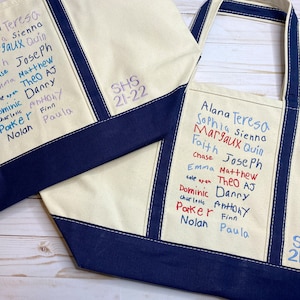 Teresa
Sienna
Margaux Quin
Joseph
Matthew
THEO AJ
Danny
Dominic Anthony
Finn
Parker
Nolan Paula
SHS
21-22
Alana Teresa
Sophia Sienna
Margaux Quin
Faith
Chase Joseph
Emma Matthew
THEO AJ
Dominic Danny
Charlotte Anthony
Parker Finn
Nolan Paula
SHS